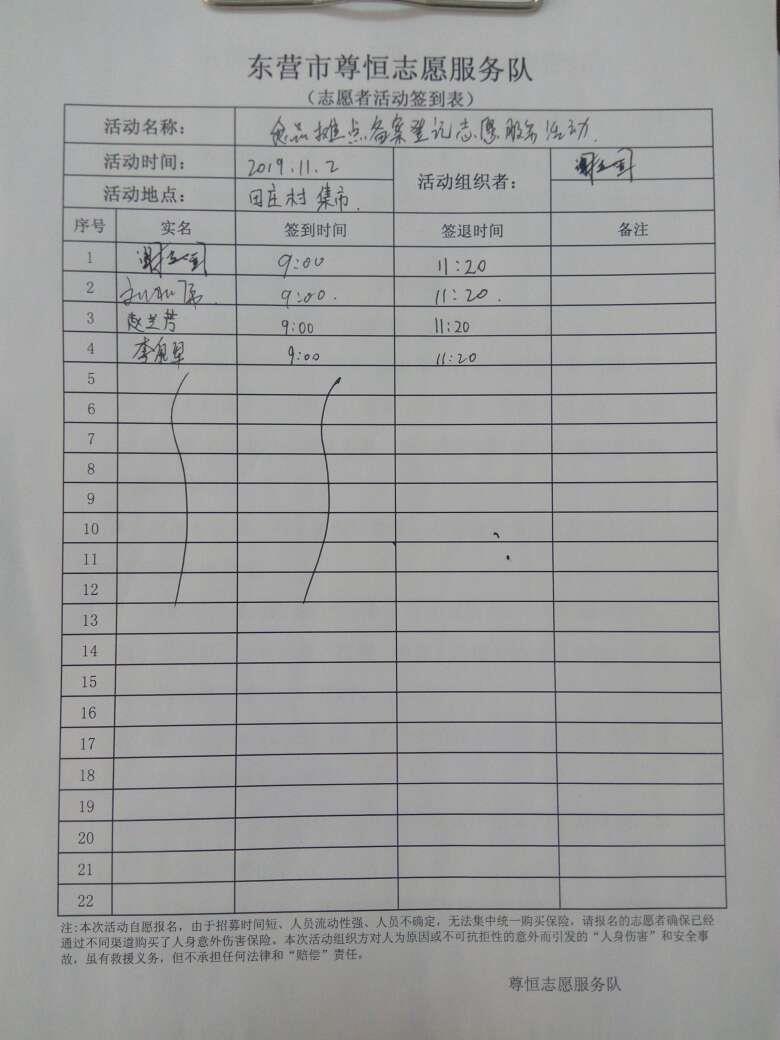 东营市尊恒志愿服务队
（志愿者活动签到表）
活动名称： 食品摊点备案登记志愿服务活动.
活动时间： 2019.11.2 活动组织者：
活动地点： 田庄村集市.
序号 实名 签到时间 签退时间 备注
1 9:00 11:20
2 9:00. 11:20.
3 赵兰芳 9:00 11:20
4 9:00 11:20
5
6
7
8
9
10
11
12
13
14
15
16
17
18
19
20
21
22
注:本次活动自愿报名，由于招募时间短、人员流动性强、人员不确定，无法集中统一购买保险，请报名的志愿者确保已经
通过不同渠道购买了人身意外伤害保险。本次活动组织方对人为原因或不可抗拒性的意外而引发的“人身伤害”和安全事
故，虽有救援义务，但不承担任何法律和“赔偿”责任。
尊恒志愿服务队